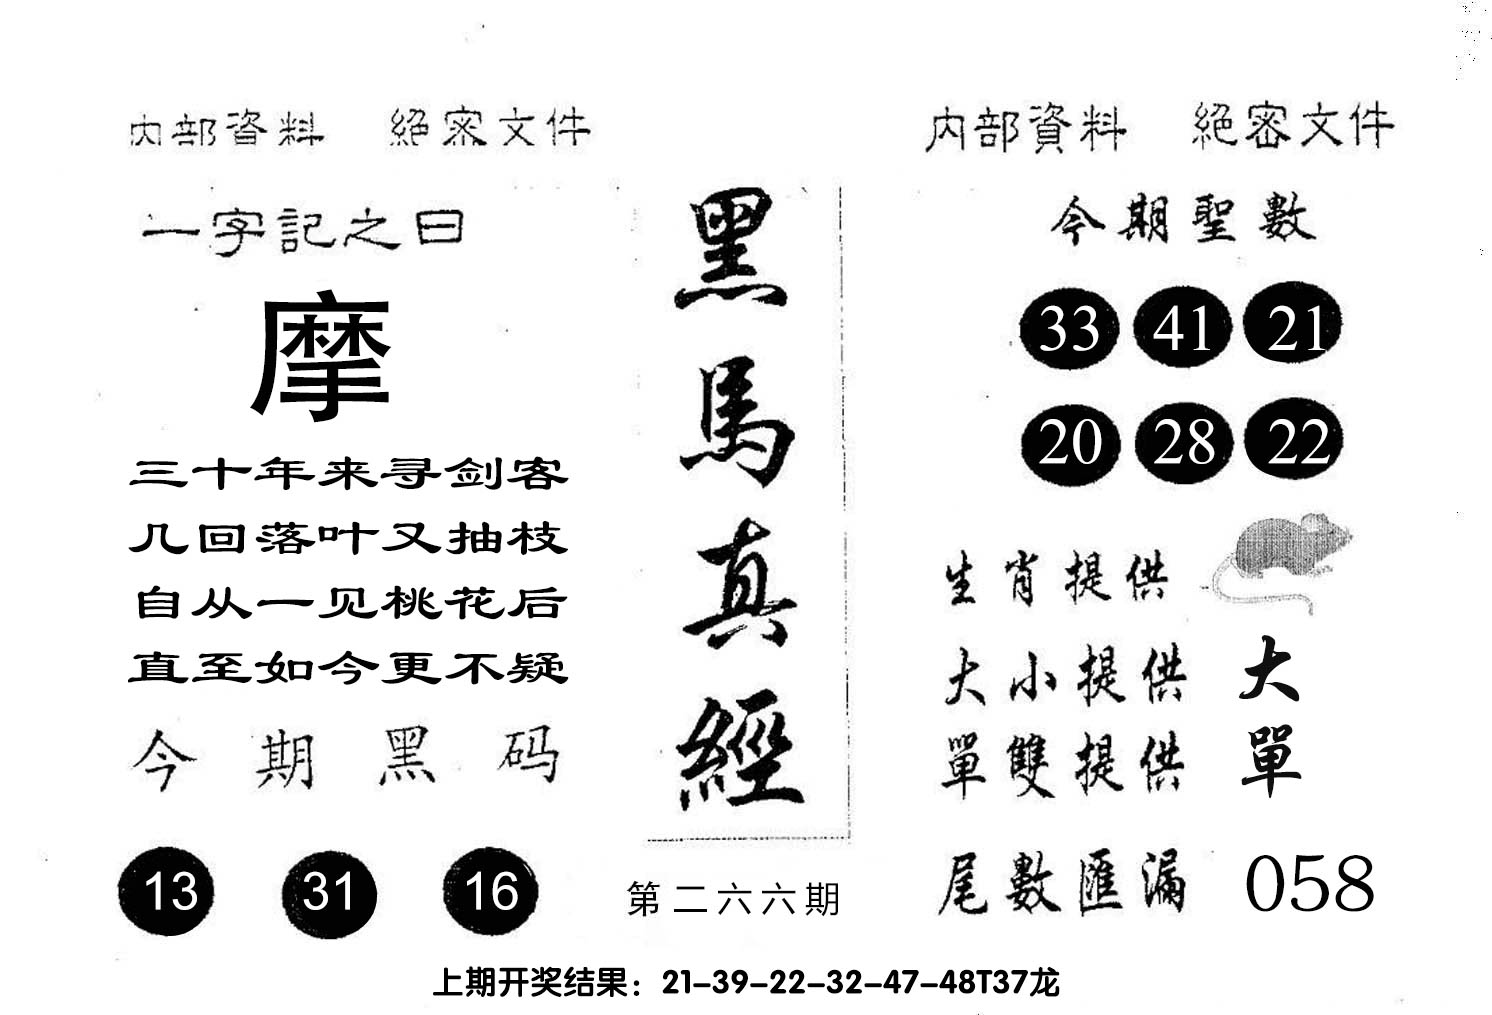 内部資料 絕密文件
一字記之曰
摩
三十年来寻剑客
几回落叶又抽枝
自从一见桃花后
直至如今更不疑
今期黑码
13 31 16
黑馬真經
第二六六期
内部資料 絕密文件
今期聖數
33 41 21
20 28 22
生肖提供
大小提供 大
單雙提供 單
尾數匯漏 058
上期开奖结果：21-39-22-32-47-48T37龙